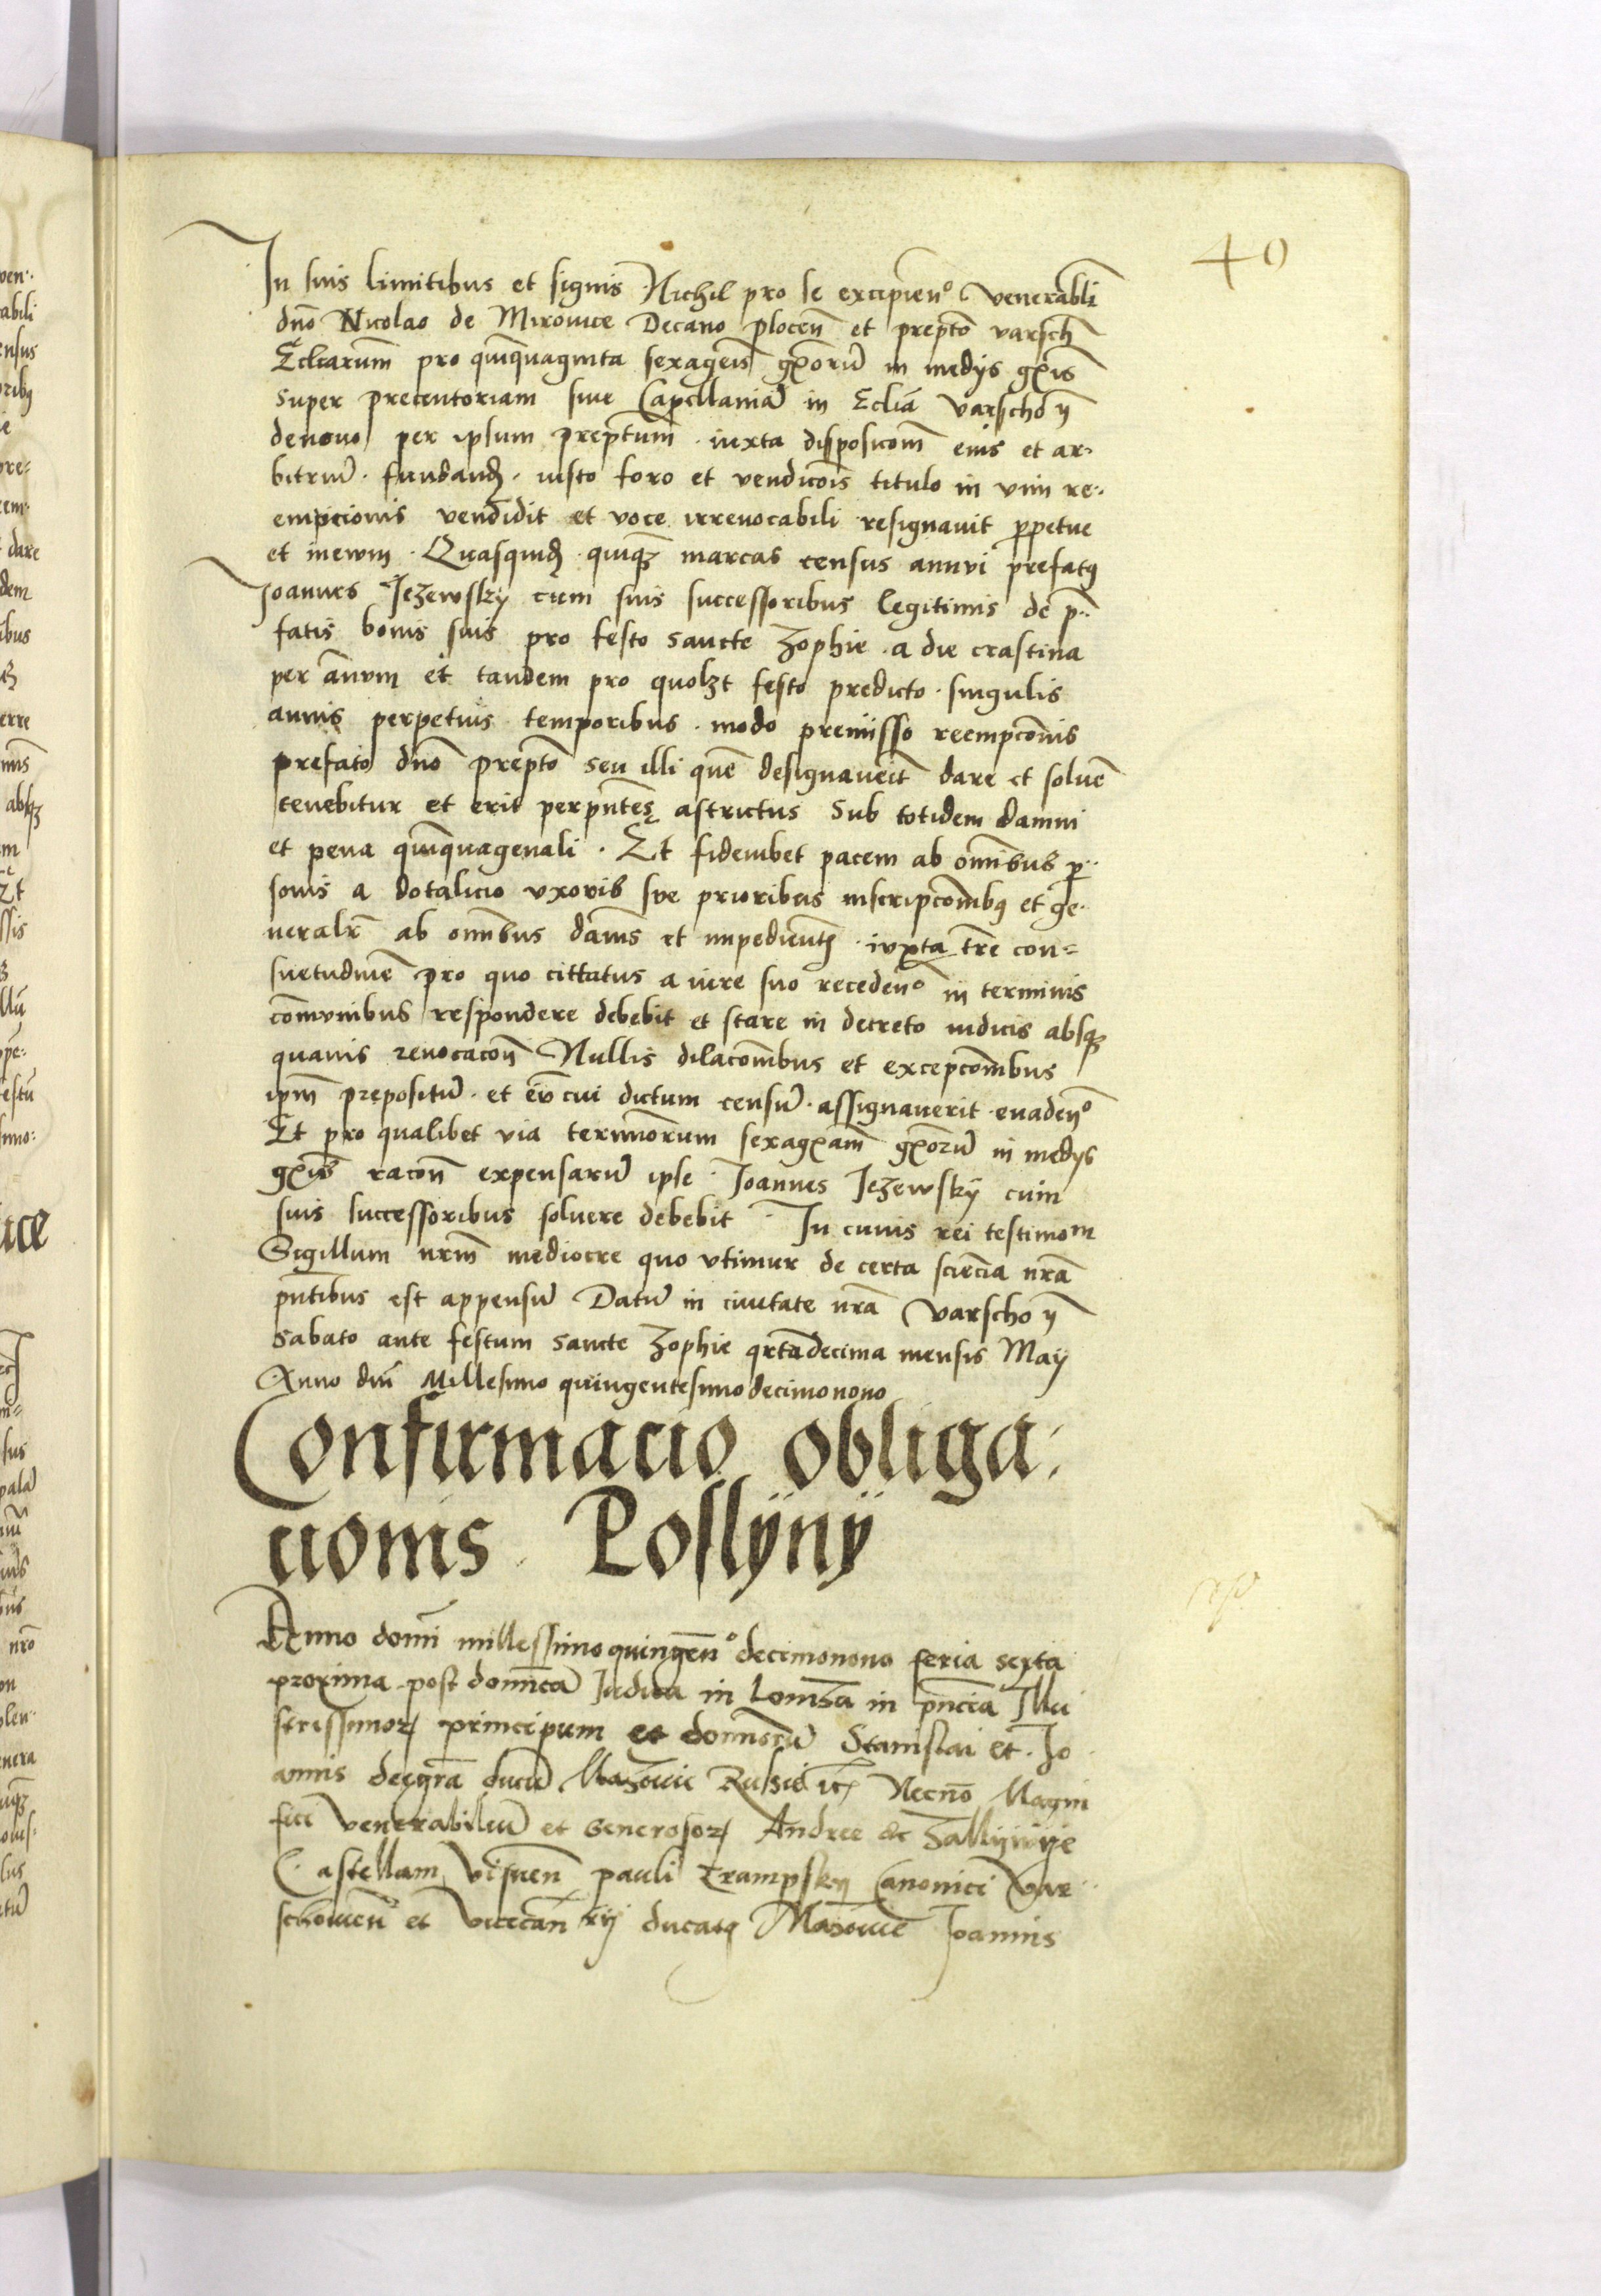 40
In suis limitibus et signis Nichil pro se excipien° venerabli
dn̄o Nicolao de Mirovice Decano plocen̄ et prep̄to varsch̄
Eccl̄iarum̄ pro quīquaginta sexagen̄ gr̄orū in medys gr̄is
super precentoriam sive Capellaniā in Ecl̄ia varschoῡ
denovo per ipsum prep̄tum iuxta disposicōm̄ eius et ar-
bitriū fundand̄ iusto foro et vendicōis titulo in vim re-
empcionis vendidit et voce irrevocabili resignavit p̄petue
et inewm · Quasquid̄ quīq₃ marcas census annui prefatꝰ
Joannes Jezewsky cum suis successoribus legitimis de p̄-
fatis bonis suis pro festo sancte Zophie a die crastina
per ān̄um et tandem pro quolꝫt festo predicto singulis
annis perpetuis temporibus modo premisso reempcōnis
prefato dn̄o prep̄to seu illi quē designaverit̄ dare et solvē
tenebitur et erit perpn̄tes astrictus sub totidem damni
et pena quīquagenali · Et fideiubet pacem ab om̄ibus p̄-
sonis a dotalicio uxoris sve prioribus inscripcōnibꝰ et ge-
neralr̄ ab om̄ibus dānis et impedientꝫ iuxta tr̄e con=
suetudinē pro quo cittatus a iure suo receden° in terminis
cōmvnibus respondere debebit et stare in decreto iudicis absqꝫ
quavis revocacōn̄ Nullis dilacōnibus et excepcōnibus
ip̄m prepositū et eū cui dictum censū assignaverit evaden°
Et pro qualibet via terminorum sexagēam̄ gr̄orū in medys
gr̄is racōn̄ expensarū ipse Joannes Jezewsky cum
suis successoribus solvere debebit · In cuius rei testimom
Sigillum nr̄m̄ mediocre quo vtimur de certa sciēcia nr̄a
pn̄tibus est appensū Datū in civitate nr̄a varschoῡ
Sabato ante festum sancte Zophie qrtadecima mensis May
Anno dn̄i Millesimo quingentesimo decimonono
Confirmacio obliga-
cionis Poslÿnÿ
Anno domī millessimo quingen̄° decimonono feria sexta
proxima post domīcā Iudica in Lomza in pn̄cia Illu
strissimoꝝ principum et dominorū Stanislai et Jo
annis dei gr̄a ducū Mazovie Russie etc̄ Necnō Magni
fici venerabiliū et Generosoꝝ Andree de Zallywye
Castellani visnen̄ pauli Crampsky Canonici Var-
schovien̄ et vicecan̄rÿ ducatꝰ Mazovie Joannis